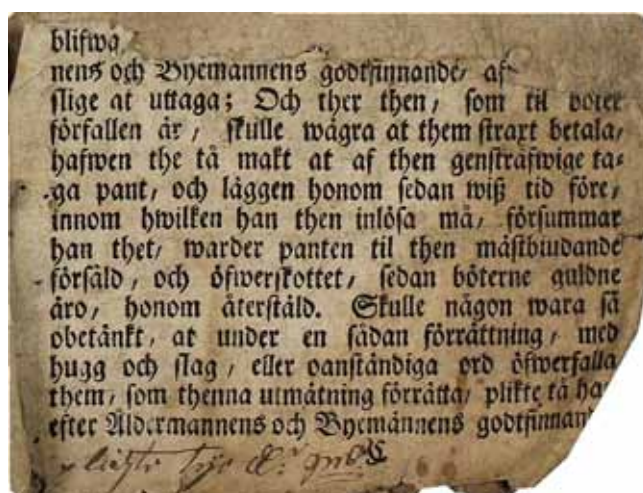 blifwa
nens och Byemannens godtfinnande, af
slige at uttaga; Och ther then, som til böter
förfallen är, skulle wägra at them straxt betala,
hafwen the tå makt at af then genstrafwige ta-
ga pant, och läggen honom sedan wiß tid före,
innom hwilken han then inlösa må, försummar
han thet, warder panten til then mästbiudande
försåld, och öfwerskottet, sedan böterne guldne
äro, honom återstäld. Skulle någon wara så
obetänkt, at under en sådan förrättning, med
hugg och slag, eller oanständiga ord öfwerfalla
them, som thenna utmätning förrätta, plikte tå ha
efter Åldermannens och Byemännens godtfinnan